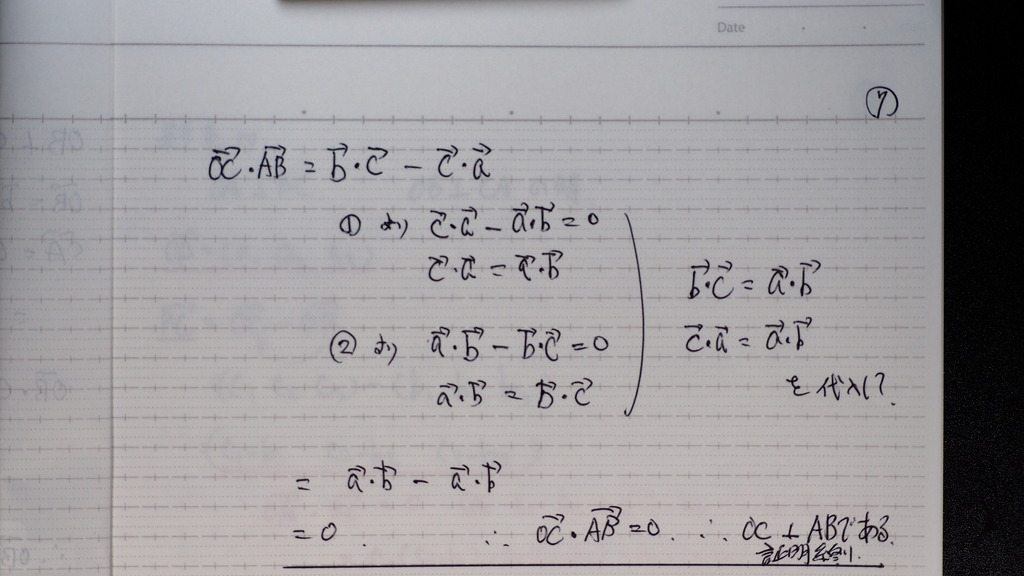 Date
⑦
$\overrightarrow{OC}\cdot\overrightarrow{AB} = \vec{b}\cdot\vec{c} - \vec{c}\cdot\vec{a}$
① より $\vec{c}\cdot\vec{a} - \vec{a}\cdot\vec{b} = 0$
$\vec{c}\cdot\vec{a} = \vec{a}\cdot\vec{b}$
② より $\vec{a}\cdot\vec{b} - \vec{b}\cdot\vec{c} = 0$
$\vec{a}\cdot\vec{b} = \vec{b}\cdot\vec{c}$
$\vec{b}\cdot\vec{c} = \vec{a}\cdot\vec{b}$
$\vec{c}\cdot\vec{a} = \vec{a}\cdot\vec{b}$
を代入して.
$= \vec{a}\cdot\vec{b} - \vec{a}\cdot\vec{b}$
$= 0$. ∴ $\overrightarrow{OC}\cdot\overrightarrow{AB} = 0$. ∴ OC ⊥ AB である.
証明終り.